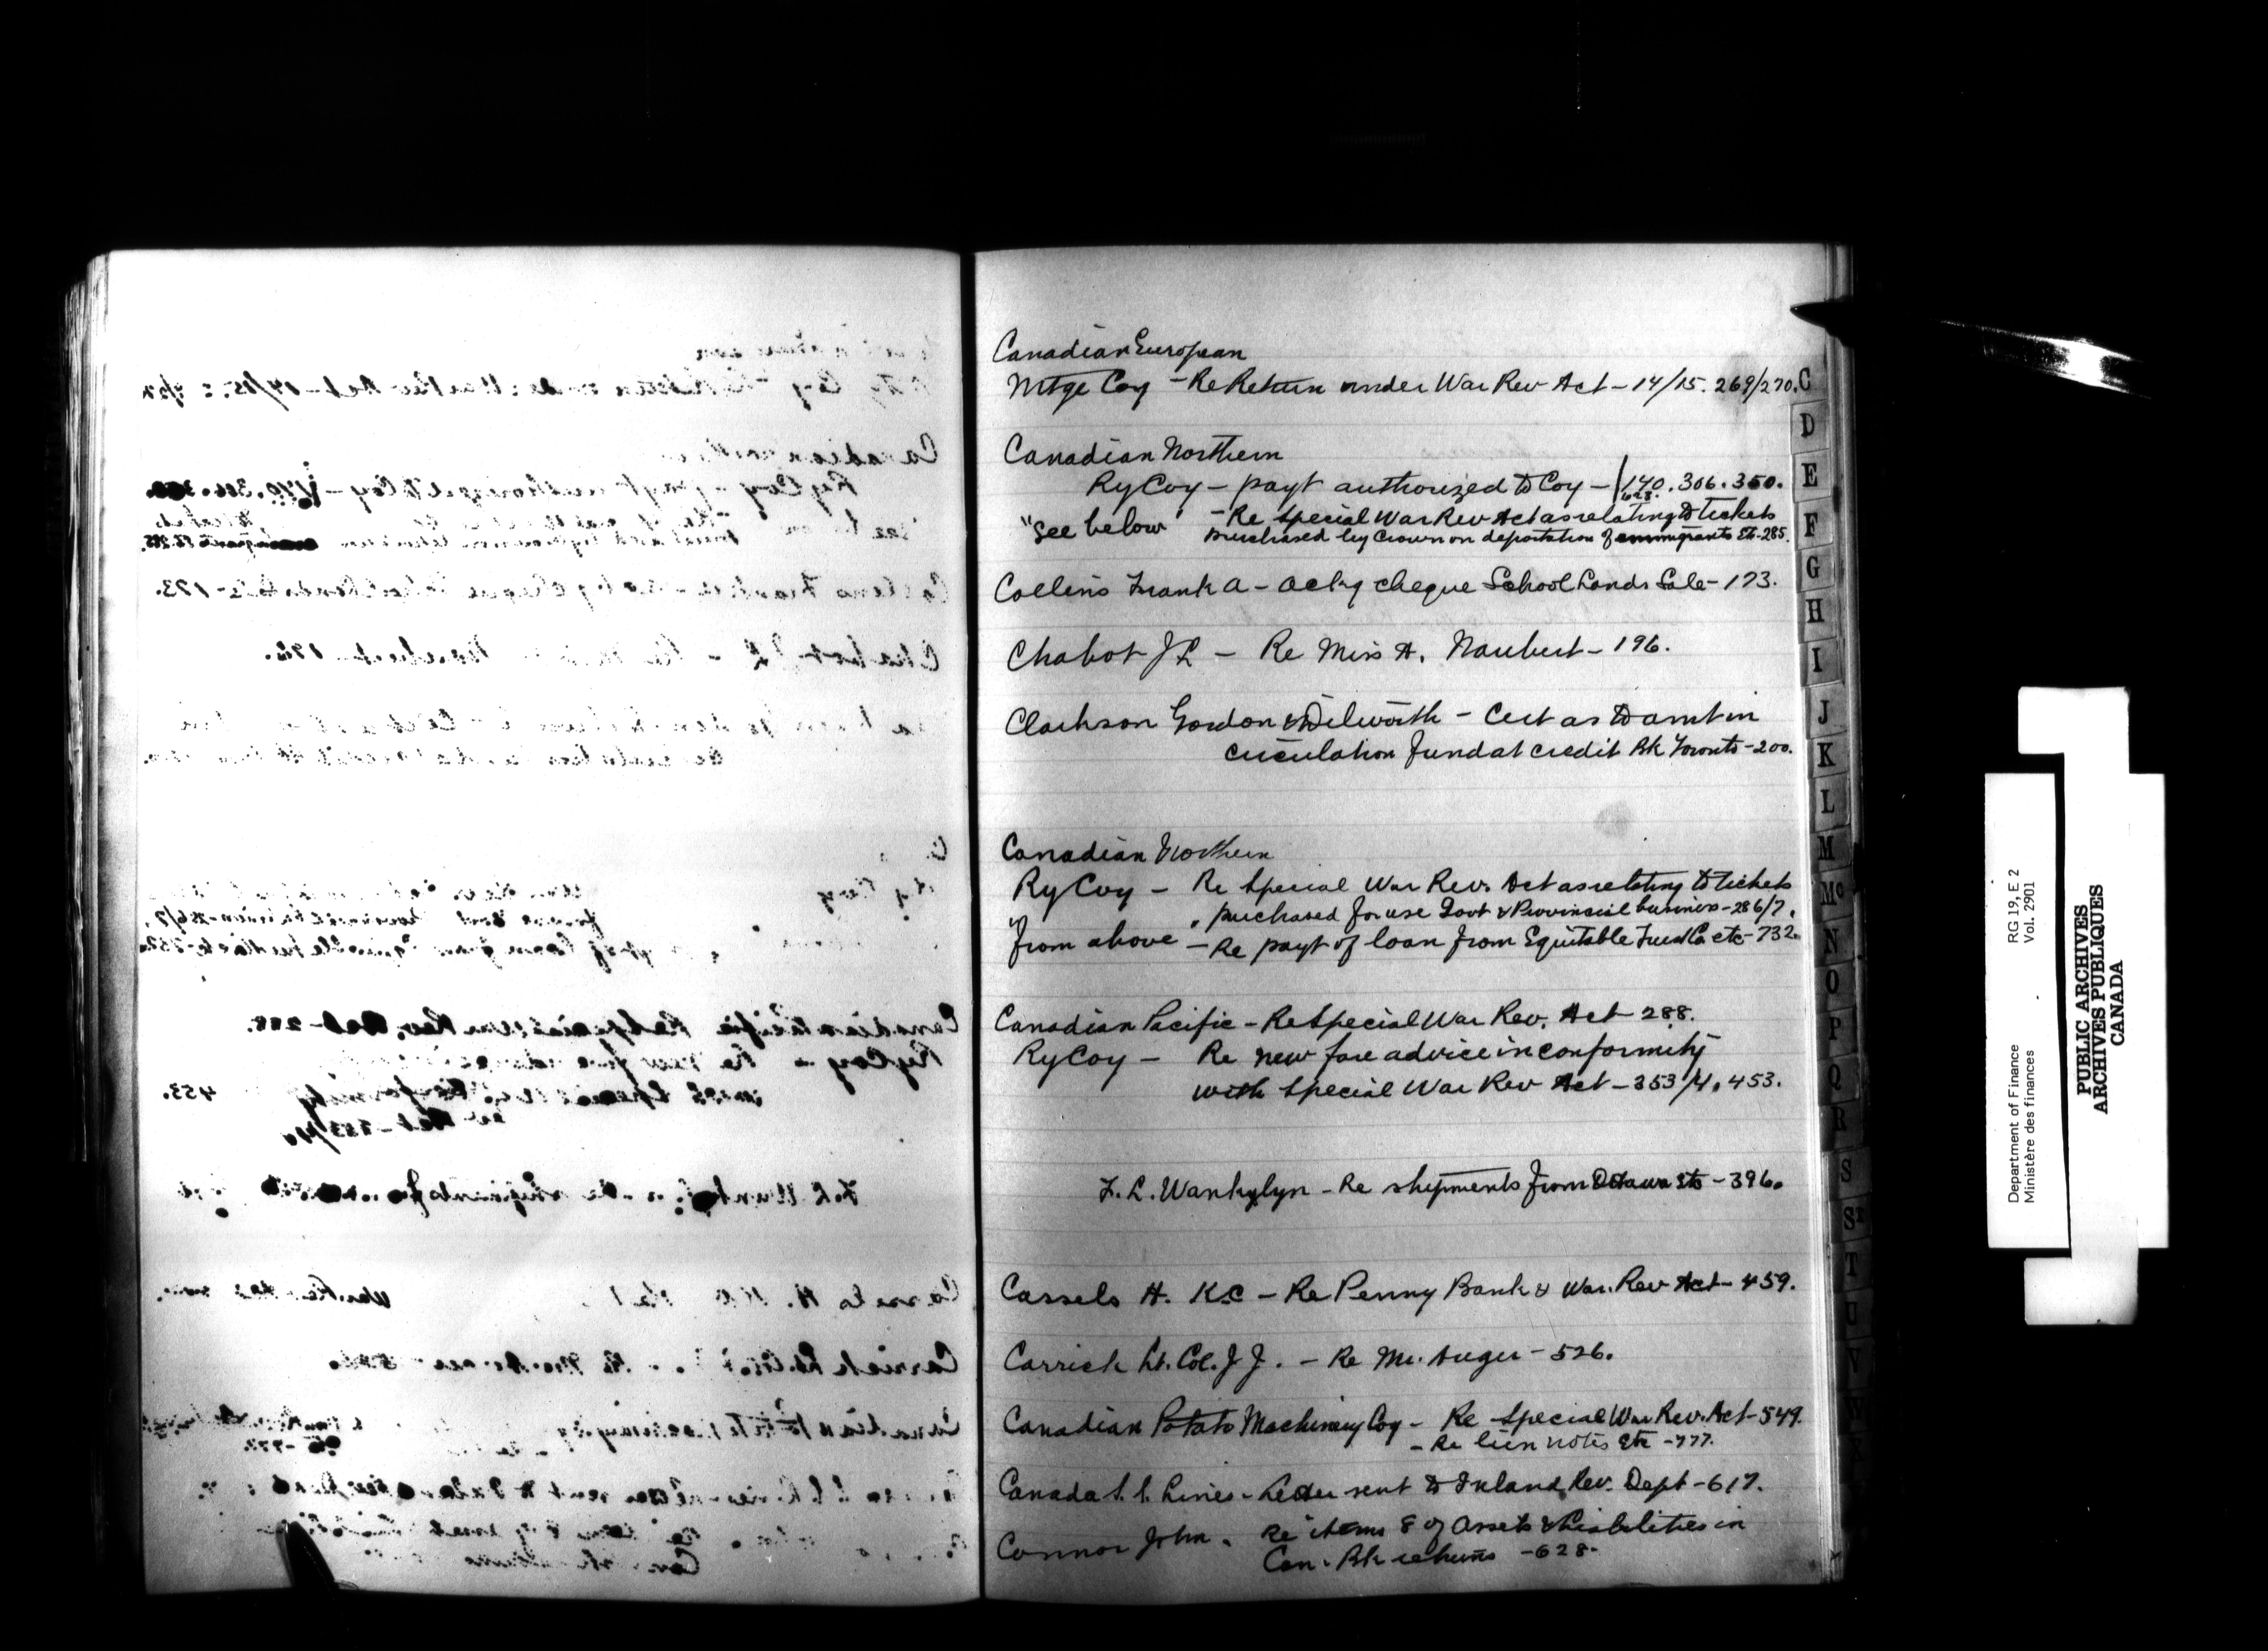 Canadian European
Mtge Coy - Re Return under War Rev Act - 14/15. 269/270.
Canadian Northern
Ry Coy - payt authorized to Coy - 140. 306. 350.
628.
"See below" - Re Special War Rev Act as relating to tickets
purchased by Crown on deportation of immigrants etc - 285.
Collins Frank A - ackg cheque School Lands Sale - 173.
Chabot J L - Re Miss A. Naubert - 196.
Clarkson Gordon & Dilworth - Cert as to amt in
circulation fund at credit Bk Toronto - 200.
Canadian Northern
Ry Coy - Re Special War Rev. Act as relating to tickets
" purchased for use Govt & Provincial business - 286/7.
from above - Re payt of loan from Equitable Trust Co etc - 732.
Canadian Pacific - Re Special War Rev. Act - 288.
Ry Coy - Re new fare advice in conformity
with Special War Rev Act - 353/4. 453.
F. L. Wanklyn - Re shipments from Ottawa etc - 396.
Cassels H. K.C - Re Penny Bank & War. Rev Act - 459.
Carrick Lt. Col. J J. - Re Mr. Auger - 526.
Canadian Potato Machinery Coy - Re Special War Rev. Act - 549.
- Re lien notes etc - 777.
Canada S. S. Lines - Letter sent to Inland Rev. Dept - 617.
Connor John. Re items 8 of Assets & Liabilities in
Can. Bk returns - 628.
C
D
E
F
G
H
I
J
K
L
M
Mc
N
O
P
Q
R
S
St
T
U
V
W
Department of Finance
Ministère des finances
RG 19, E 2
Vol. 2901
PUBLIC ARCHIVES
ARCHIVES PUBLIQUES
CANADA